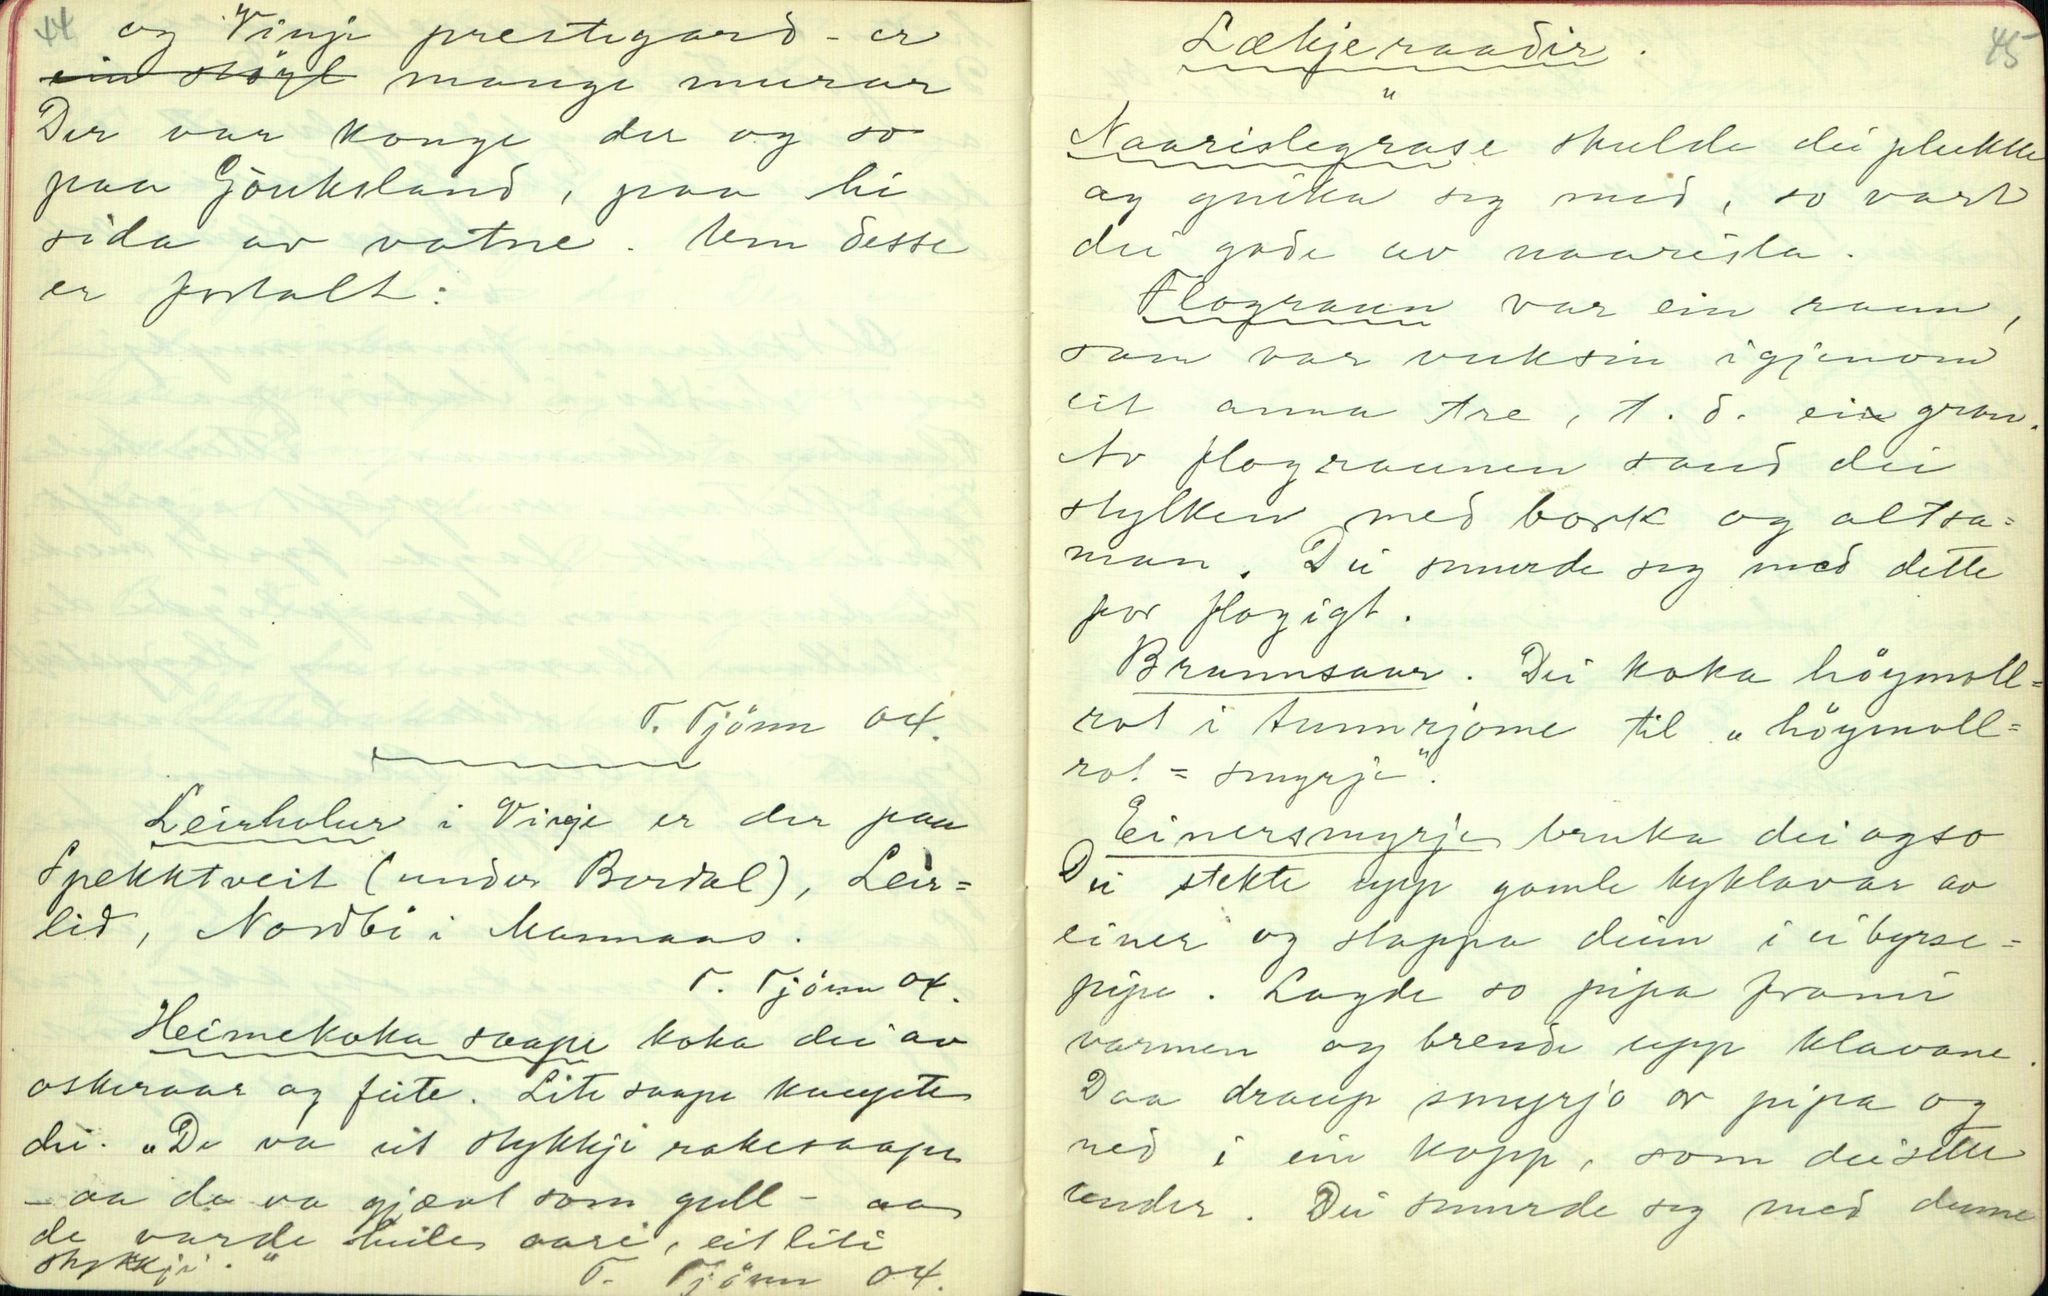 44
og Vinje prestegard - er
ein skógl mange murar
Der var konge der og so
paa Gjøuksland, paa hi
sida av vatne. Um desse
er fortalt:
T. Tjønn 04.
Leirholur i Vinje er der paa
Spekktveit (under Bordal), Leir=
lid, Nordbø i Mannaas.
T. Tjønn 04.
Heimekoka saape koka dei av
oskeraar og feite. Lite saape kaupte
dei. "De va eit stykkji rakesaape
- aa de va gjævt som gull - aa
de varde heile aari, eit liti
stykkji."
T. Tjønn 04.
45
Lækjeraadir.
"
Naarislegrase skulde dei plukke
og gnika seg med, so vart
dei gode av naarisla.
Flograun var ein raun,
som var vuksin igjenom
eit anna tre, t. d. ei gran.
Av flograunen saud dei
stylken med bork og altsa=
man. Dei smurde seg med dette
for flogigt.
Brunnsaar. Dei koka høymoll=
rot i tunnrjome til "høymoll=
rot = smyrje".
Einersmyrje bruka dei ogso
Dei stekte upp gamle kyklavar av
einer og stappa deim i ei byrse=
pipe. Lagde so pipa frami
varmen og brende upp klavane.
Daa draup smyrjo or pipa og
ned i ein kopp, som dei sette
under. Dei smurde seg med denne